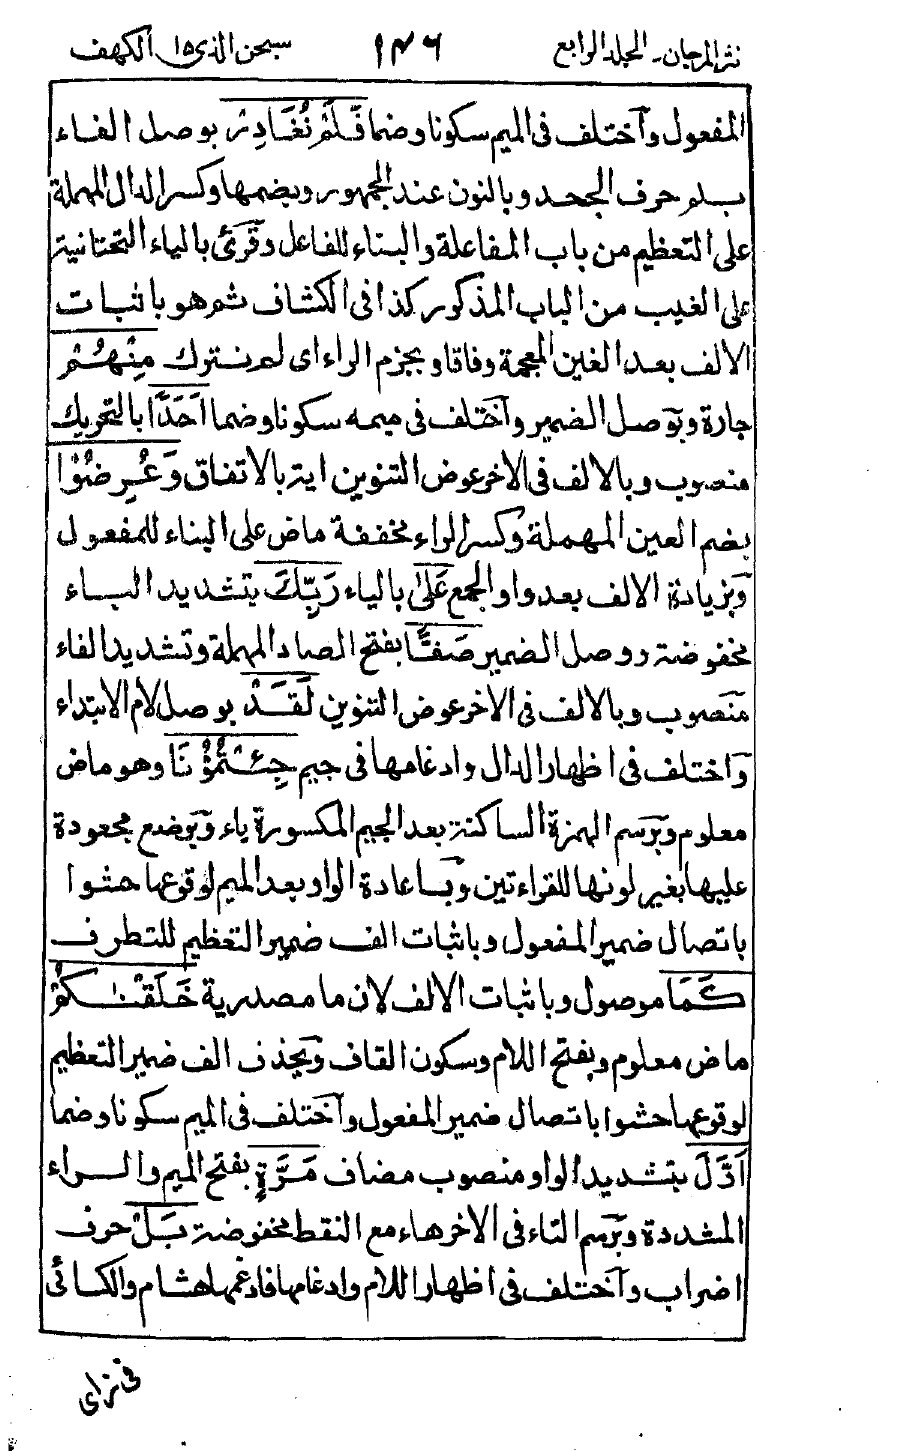 نثر المرجان۔ المجلد الرابع ١٤٦ سبحن الذی ١٥ الکهف
المفعول واختلف فی المیم سکونا وضما فَلَمْ نُغَادِرْ بوصل الفاء
بلم حرف الجحد وبالنون عند الجمهور وبضمها وکسر الدال المهملة
علی التعظیم من باب المفاعلة والبناء للفاعل وقرئ بالیاء التحتانیة
علی الغیب من الباب المذکور کذا فی الکشاف ثم هو باثبات
الالف بعد الغین المعجمة وفاقا وبجزم الراء ای لم نترك مِنْهُمْ
جارة وبوصل الضمیر واختلف فی میمه سکونا وضما اَحَدًا بالتحریك
منصوب وبالالف فی الاخر عوض التنوین ایة بالاتفاق وَعُرِضُوْا
بضم العین المهملة وکسر الراء مخففة ماض علی البناء للمفعول
وبزیادة الالف بعد واو الجمع عَلٰی بالیاء رَبِّكَ بتشدید الباء
مخفوضة ووصل الضمیر صَفًّا بفتح الصاد المهملة وتشدید الفاء
منصوب وبالالف فی الاخر عوض التنوین لَقَدْ بوصل لام الابتداء
واختلف فی اظهار الدال وادغامها فی جیم جِئْتُمُوْنَا وهو ماض
معلوم وبرسم الهمزة الساکنة بعد الجیم المکسورة یاء وبوضع مجعودة
علیها بغیر لونها للقراءتین وباعادة الواو بعد المیم لوقوعها حشوا
باتصال ضمیر المفعول وباثبات الف ضمیر التعظیم للتطرف
کَمَا موصول وباثبات الالف لان ما مصدریة خَلَقْنٰکُمْ
ماض معلوم وبفتح اللام وسکون القاف وبحذف الف ضمیر التعظیم
لوقوعها حشوا باتصال ضمیر المفعول واختلف فی المیم سکونا وضما
اَوَّلَ بتشدید الواو منصوب مضاف مَرَّةٍ بفتح المیم والراء
المشددة وبرسم التاء فی الاخر هاء مع النقط مخفوضة بَلْ حرف
اضراب واختلف فی اظهار اللام وادغامها فادغمها هشام والکسائی
فی زای